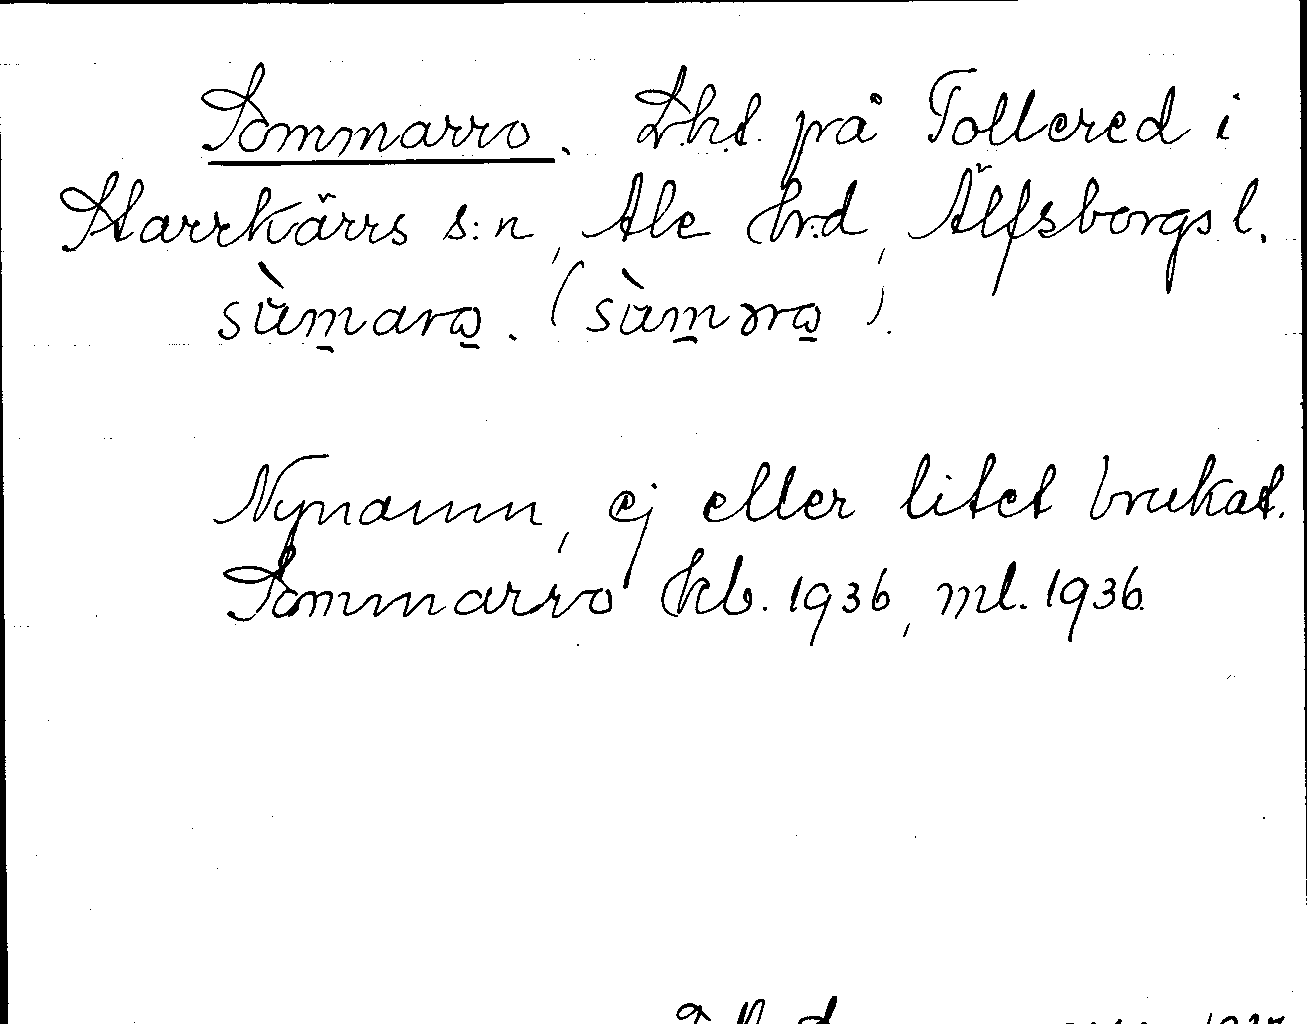 Sommarro. Lht. på Tollered i
Starrkärrs s:n, Ale hrd, Älfsborgs l.
sùm̠arɷ̠. (sùm̠ərɷ̠).
Nynamn, ej eller litet brukat.
Sommarro kb. 1936, ml. 1936.